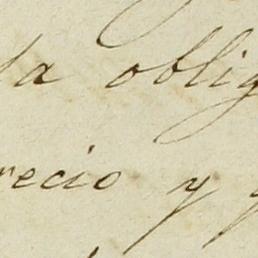 la oblig
recio y